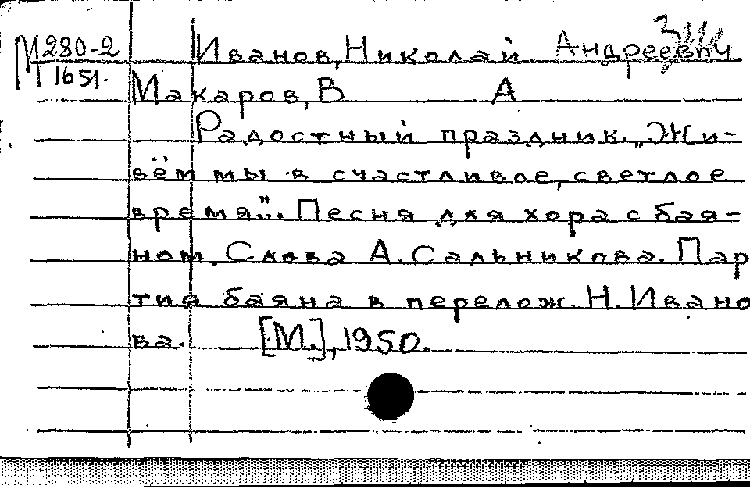 М 280-2
1651.
Иванов, Николай Андреевич
Макаров, В А
Радостный праздник. „Жи-
вём мы в счастливое, светлое
время". Песня для хора с бая-
ном. Слова А. Сальникова. Пар
тия баяна в перелож. Н. Ивано
ва. [М.], 1950.